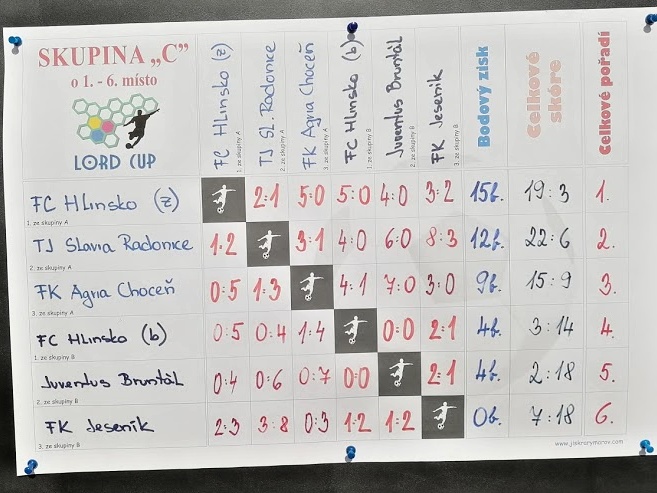 SKUPINA „C"
o 1. - 6. místo
LORD CUP
FC Hlinsko (ž)
1. ze skupiny A
TJ Sl. Radonice
2. ze skupiny A
FK Agria Choceň
3. ze skupiny A
FC Hlinsko (b)
1. ze skupiny B
Juventus Bruntál
2. ze skupiny B
FK Jeseník
3. ze skupiny B
Bodový zisk
Celkové skóre
Celkové pořadí
FC Hlinsko (ž) 2:1 5:0 5:0 4:0 3:2 15b. 19:3 1.
1. ze skupiny A
TJ Slavia Radonice 1:2 3:1 4:0 6:0 8:3 12b. 22:6 2.
2. ze skupiny A
FK Agria Choceň 0:5 1:3 4:1 7:0 3:0 9b. 15:9 3.
3. ze skupiny A
FC Hlinsko (b) 0:5 0:4 1:4 0:0 2:1 4b. 3:14 4.
1. ze skupiny B
Juventus Bruntál 0:4 0:6 0:7 0:0 2:1 4b. 2:18 5.
2. ze skupiny B
FK Jeseník 2:3 3:8 0:3 1:2 1:2 0b. 7:18 6.
3. ze skupiny B
www.jiskrarymarov.com